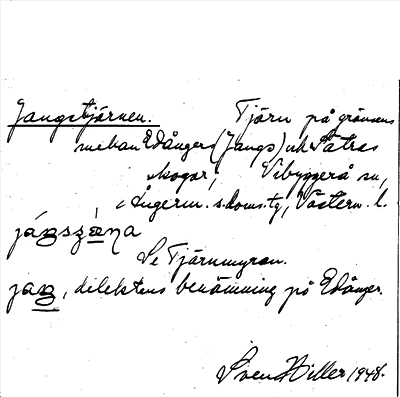 Jangstjärnen. Tjärn på gränsen
mellan Edångers (Jangs) och Sätras
skogar, Vibyggerå sn,
i Ångerm. s. doms.tg, Västern. l.
Se Tjärnmyran.
, dialektens benämning på Edånger.
Sven Hiller 1948.